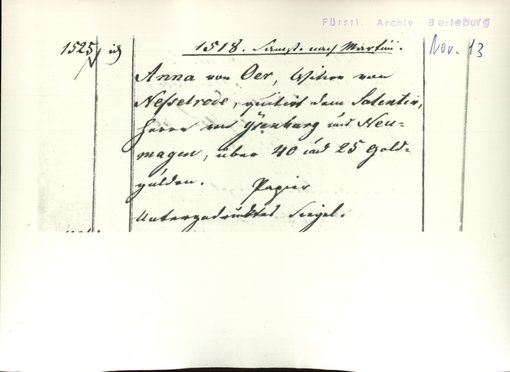 Fürstl. Archiv Berleburg
Nov. 13
1525
1518. Samst. nach Martini.
Anna von Oer, Witwe von
Nesselrode, quitirt dem Salentin,
Herrn von Ysenburg und Neu-
magen, über 40 und 25 Gold-
gulden. Papier
Untergedrucktes Siegel.